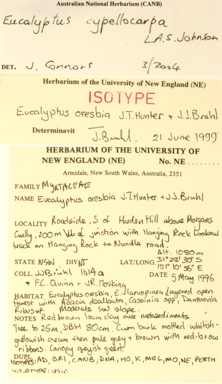 Australian National Herbarium (CANB)
Eucalyptus cypellocarpa
L.A.S. Johnson
DET. J. Connors 3/2004
Herbarium of the University of New England (NE)
ISOTYPE
Eucalyptus oresbia J.T.Hunter & J.J.Bruhl
Determinavit J. Bruhl 21 June 1999
HERBARIUM OF THE UNIVERSITY OF
NEW ENGLAND (NE) No. NE
Armidale, New South Wales, Australia, 2351
FAMILY MYRTACEAE
NAME Eucalyptus oresbia J.T.Hunter & J.J.Bruhl
LOCALITY Roadside, S of Hurden Hill above Morgans
Gully, 200m of junction with Hanging Rock Lookout
track on Hanging Rock to Nundle road.
Alt. 1080m
STATE NSW DIVN LAT/LONG 31° 28' 30" S
151° 10' 56" E
COLL JJ.Bruhl 1614a DATE 5 May 1996
& F.C. Quinn & J.R. Hosking
HABITAT Eucalyptus open
forest with Acacia dealbata, Cassinia spp,
Moderate SW slope.
NOTES Red brown loam clay over metasediments
Tree to 25m, DBH 80cm. Gum bark mottled whitish-
yellowish cream then pale grey & brown with red-brow
ribbons. Canopy greyish green
DUPL. AD, BRI, CANB, DNA, HO, K, MEL, MO, NE, PERTH